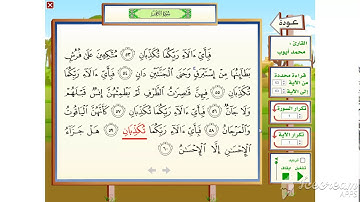 عودة
القارئ :
محمد أيوب
قراءة محددة
من الآية
إلى الآية
تكرار السورة
تكرار الآية
فَبِأَيِّ ءَالَآءِ رَبِّكُمَا تُكَذِّبَانِ ٥٣ مُتَّكِـِٔينَ عَلَىٰ فُرُشٍۭ
بَطَآئِنُهَا مِنْ إِسْتَبْرَقٍ وَجَنَى ٱلْجَنَّتَيْنِ دَانٍ ٥٤ فَبِأَيِّ ءَالَآءِ رَبِّكُمَا
تُكَذِّبَانِ ٥٥ فِيهِنَّ قَٰصِرَٰتُ ٱلطَّرْفِ لَمْ يَطْمِثْهُنَّ إِنسٌ قَبْلَهُمْ
وَلَا جَآنٌّ ٥٦ فَبِأَيِّ ءَالَآءِ رَبِّكُمَا تُكَذِّبَانِ ٥٧ كَأَنَّهُنَّ ٱلْيَاقُوتُ
وَٱلْمَرْجَانُ ٥٨ فَبِأَيِّ ءَالَآءِ رَبِّكُمَا تُكَذِّبَانِ ٥٩ هَلْ جَزَآءُ
ٱلْإِحْسَٰنِ إِلَّا ٱلْإِحْسَٰنُ ٦٠